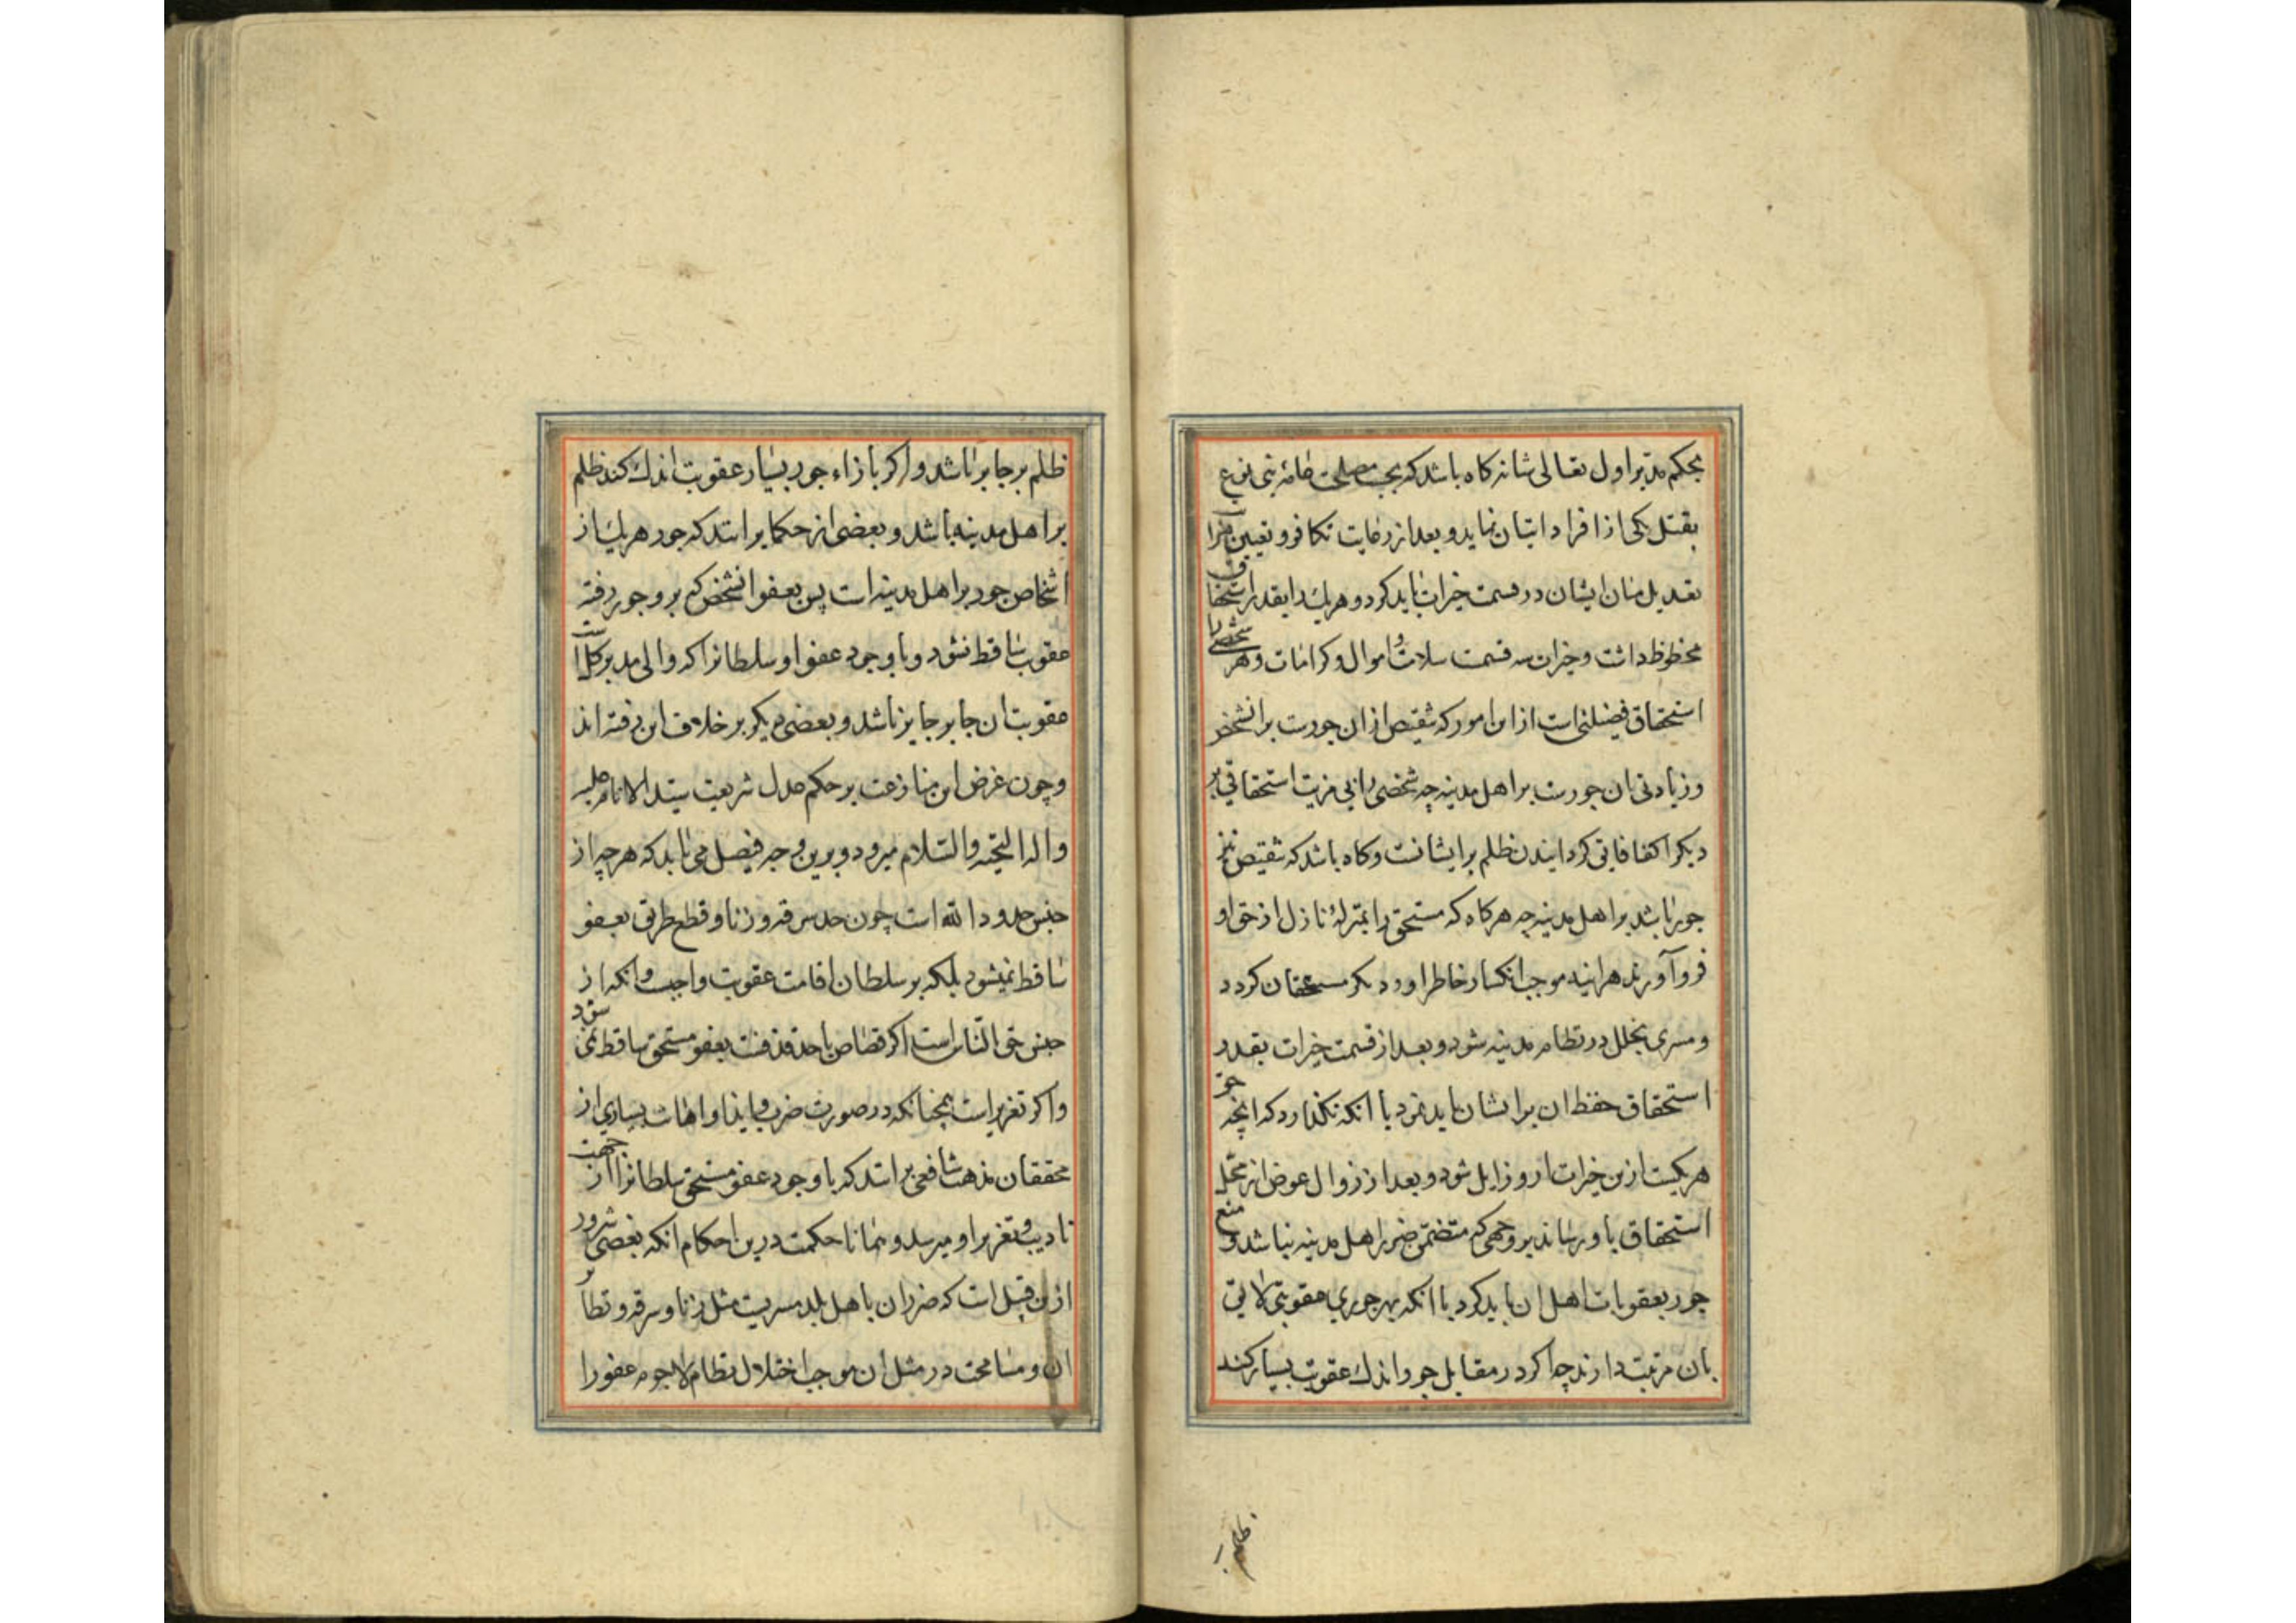 بحکم مدبر اول تعالی شانه کاه باشد که بجهت مصلحت عامه بنی نوع
بقتل یکی از افراد اتیان نماید و بعد از رعایت تکافو و تعیین
تعدیل میان ایشان در قسمت خیرات باید کرد و هریک را بقدر استحقاق
محظوظ داشت و خیرات سه قسمت سلامت و اموال و کرامات و هر شخصی را
استحقاق فضیلتی است از این امور که تنقیص از ان جورست بر انشخص
و زیادتی ان جورست بر اهل مدینه چه شخصی را بی مزیت استحقاقی بر
دیکر اکفا فایق کردانیدن ظلم بر ایشانست و کاه باشد که تنقیص نیز
جور باشد بر اهل مدینه چه هرکاه که مستحق را بمنزلهٔ نازل از حق او
فرو آورند هراینه موجب انکسار خاطر او و دیکر مستحقان کردد
و مسری بخلل در نظام مدینه شود و بعد از قسمت خیرات بقدر
استحقاق حفظ ان بر ایشان باید نمود با انکه نکذارد که انچه حق
هریکیست ازین خیرات ازو زایل شود و بعد از زوال عوض از محل
استحقاق باو رساند بر وجهی که متضمن ضرر اهل مدینه نباشد و منع
جور بعقوبات اهل ان باید کرد با انکه بهر جوری عقوبتی لایق
بان مرتبت دارند چه اکر در مقابل جور اندک عقوبت بسیار کند
ظلم بر جایر باشد و اکر بازاء جور بسیار عقوبت اندک کند ظلم
بر اهل مدینه باشد و بعضی از حکما برانند که جور هر یک از
اشخاص جور بر اهل مدینه است پس بعفو انشخص که برو جور رفته
عقوبت ساقط نشود و با وجود عفو او سلطانرا که والی مدبر کلست
عقوبت ان جایر جایز باشد و بعضی دیکر بر خلاف این رفته اند
و چون غرض این منازعت بر حکم عدل شریعت سید الانام علیه
و اله التحیه والسلام میرود و برین وجه فیصل می یابد که هرچه از
جنس حدود الله است چون حد سرقه و زنا و قطع طریق بعفو
ساقط نمیشود بلکه بر سلطان اقامت عقوبت واجبست و انکه از
جنس حق الناس است اکر قصاص یا حد قذفست بعفو مستحق ساقط می شود
و اکر تعزیر است همچنانکه در صورت ضرب و ایذا و اهانت بسیاری از
محققان مذهب شافعی برانند که با وجود عفو مستحق سلطانرا از جهت
تادیب و تعزیر او میرسد و همانا حکمت درین احکام انکه بعضی شرور
ازین قبیل است که ضرر ان باهل بلد مسریست مثل زنا و سرقه و نظایر
ان و مسامحت در مثل ان موجب اختلال نظام لاجرم عفو را